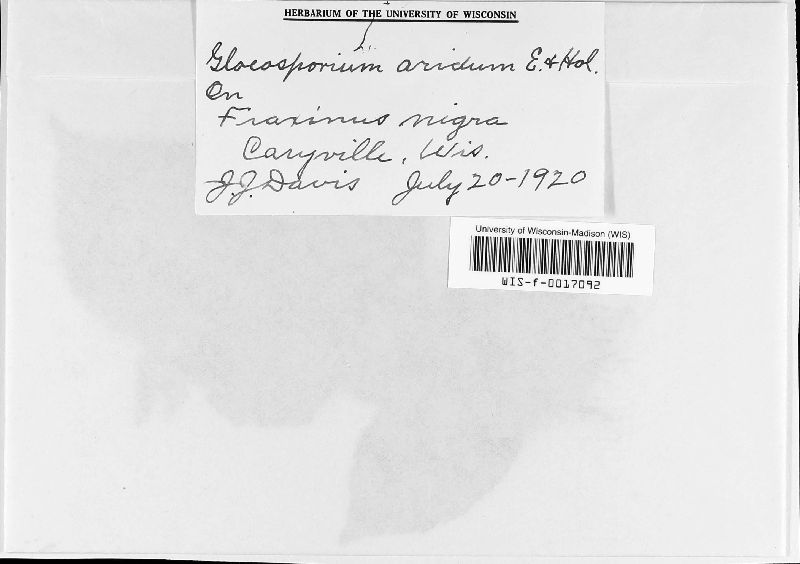 HERBARIUM OF THE UNIVERSITY OF WISCONSIN
Gloeosporium aridum E. & Hol.
On
Fraxinus nigra
Caryville, Wis.
J.J. Davis July 20-1920
University of Wisconsin-Madison (WIS)
WIS-f-0017092